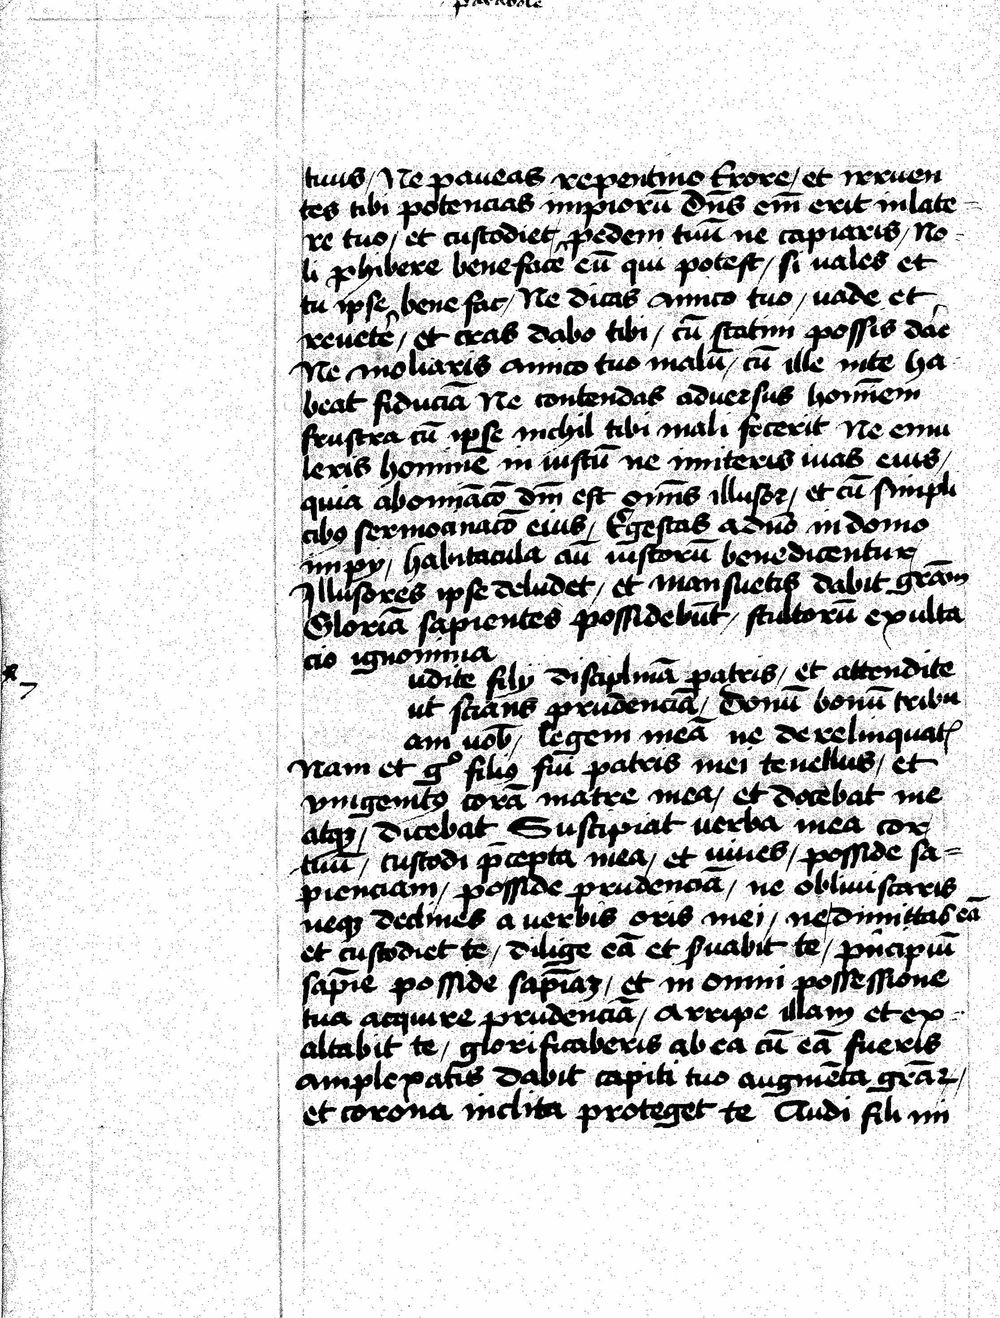 parabole
tuus / Ne paveas repentino terore / et irruen
tes tibi potencias impiorū Dn̄s em̄ erit in late=
re tuo / et custodiet pedem tuū ne capiaris / No=
li ꝓhibere benefac̄e eū qui potest / si vales et
tu ip̄se bene fac / Ne dicas amico tuo / vade et
reuet̄e / et cras dabo tibi / cū statim possis dar̄e
Ne moliaris amico tuo malū / cū ille in te ha
beat fiduciā Ne contendas adversus hominem
frustra cū ip̄se nichil tibi mali fecerit Ne emu
leris hominē in iustū ne imiteris vias eius /
quia abominac̄o dn̄i est om̄is illusor / et cū simpli
cibꝫ sermocinac̄o eius / Egestas a dn̄o in domo
impij / habitacula aū iustorū benedicentur
Illusores ip̄se deludet / et mansuetis dabit gr̄am
Gloriā sapientes possidebūt / stultorū exulta
cio ignominia
udite filij disciplinā patris / et attendite
ut sciatis prudenciā / Donū bonū tribu
am vob̄ / legem meā ne derelinquatꝭ
Nam et gͦ filiꝰ fui patris mei tenellus / et
vnigenitꝰ corā matre mea / et docebat me
atqꝫ / dicebat Suscipiat verba mea cor
tuū / custodi p̄cepta mea / et viues / posside sa=
pienciam / posside prudenciā / ne obliuiscaris
neqꝫ declines a verbis oris mei / ne dimittas eā
et custodiet te / dilige eā et s̄uabit te / pͥncipiū
sapīe posside sapīaꝫ / et in omni possessione
tua acquire prudenciā / Arripe illam et ex=
altabit te / glorificaberis ab ea cū eā fueris
amplexatꝰ dabit capiti tuo augmēta gr̄aꝝ /
et corona inclita proteget te Audi fili mi